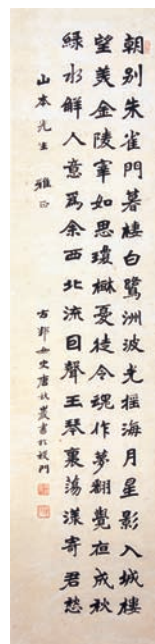 朝別朱雀門暮棲白鷺洲波光搖海月星影入城樓
望美金陵宰如思瓊樹憂徒令魂作夢翻覺夜成秋
綠水解人意為余西北流因聲玉琴裏蕩漾寄君愁
山本先生 雅正
女史唐 書於 門